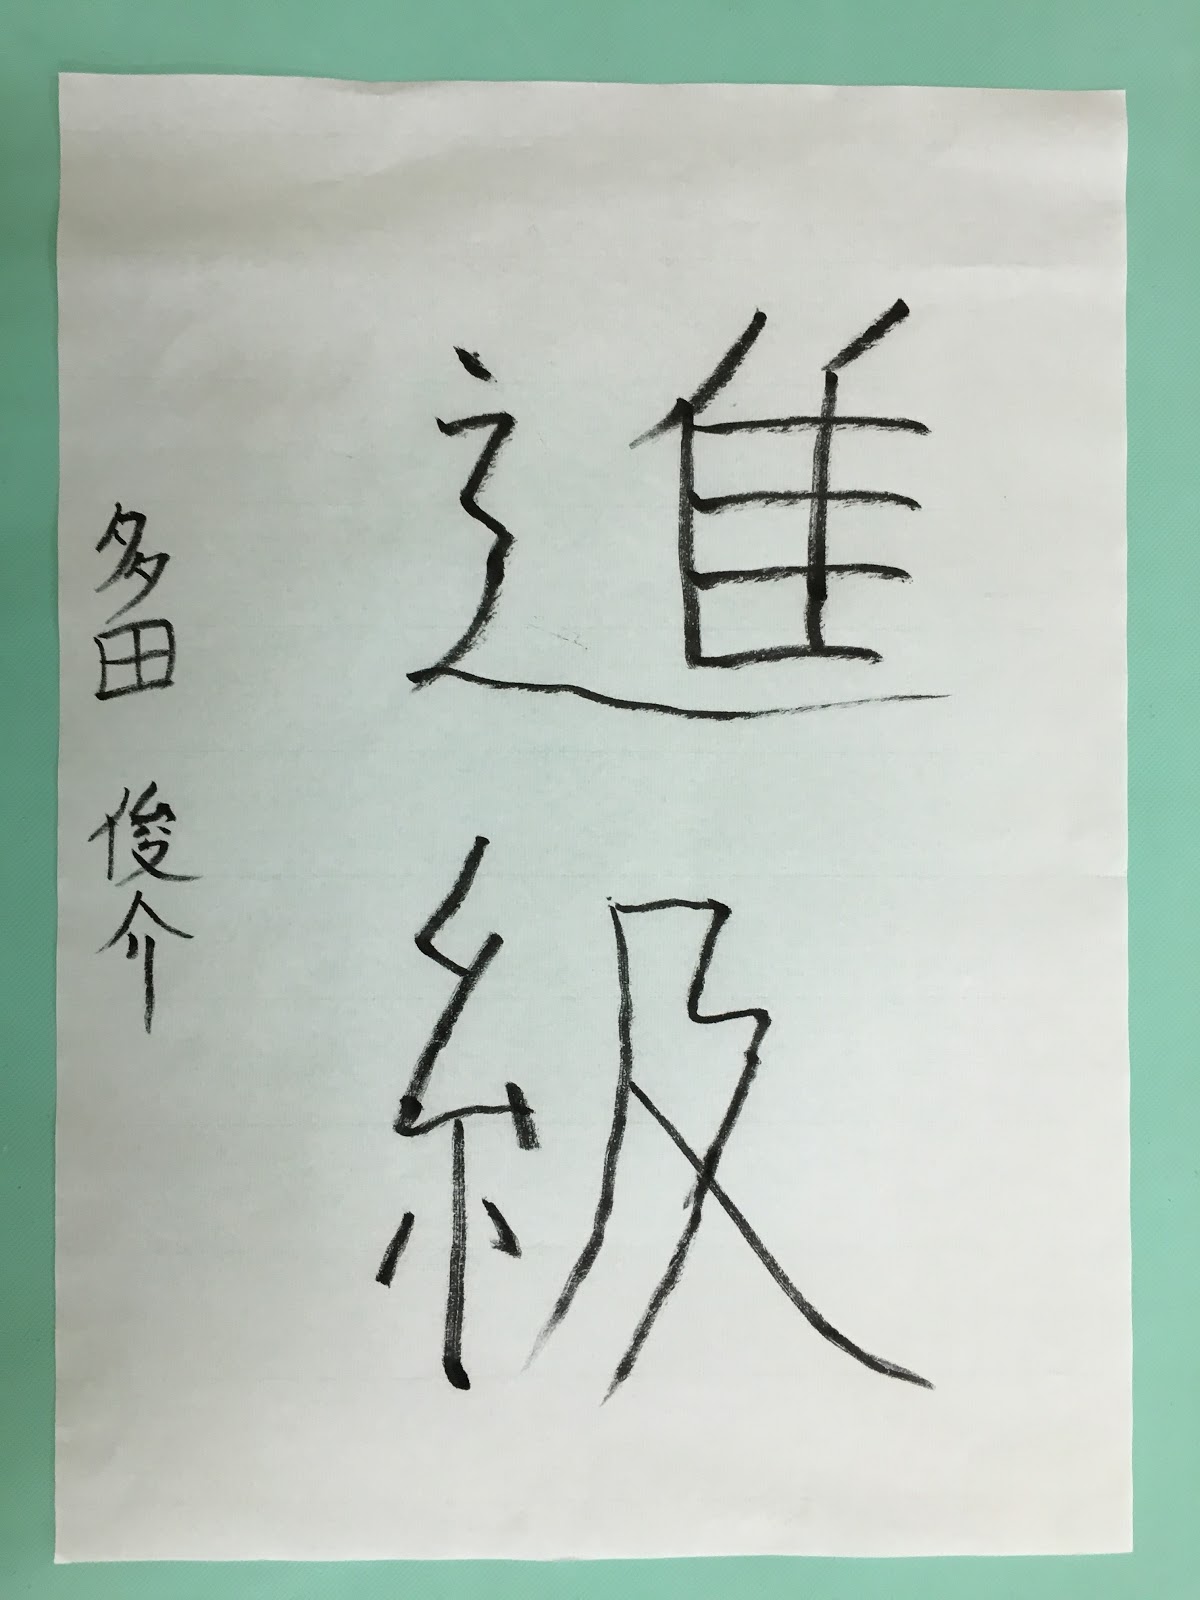 進級
多田 俊介